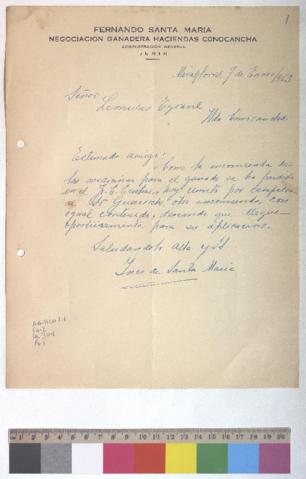 1
FERNANDO SANTA MARIA
NEGOCIACION GANADERA HACIENDAS CONOCANCHA
ADMINISTRACION GENERAL
JUNIN
Miraflores, 7 de Enero/953
Señor
Leonidas
Hda Conocancha
Estimado amigo:
Como la encomienda de
las medicinas para el ganado se ha perdido
en el F. C. Central, hoy remito por
otra encomienda, con
igual contenido, deseando que llegue
oportunamente para su aplicación.
Saludandolo atto y SS
de Santa Maria
1 2 3 4 5 6 7 8 9 10 11 12 13 14 15 16 17 18 19 20